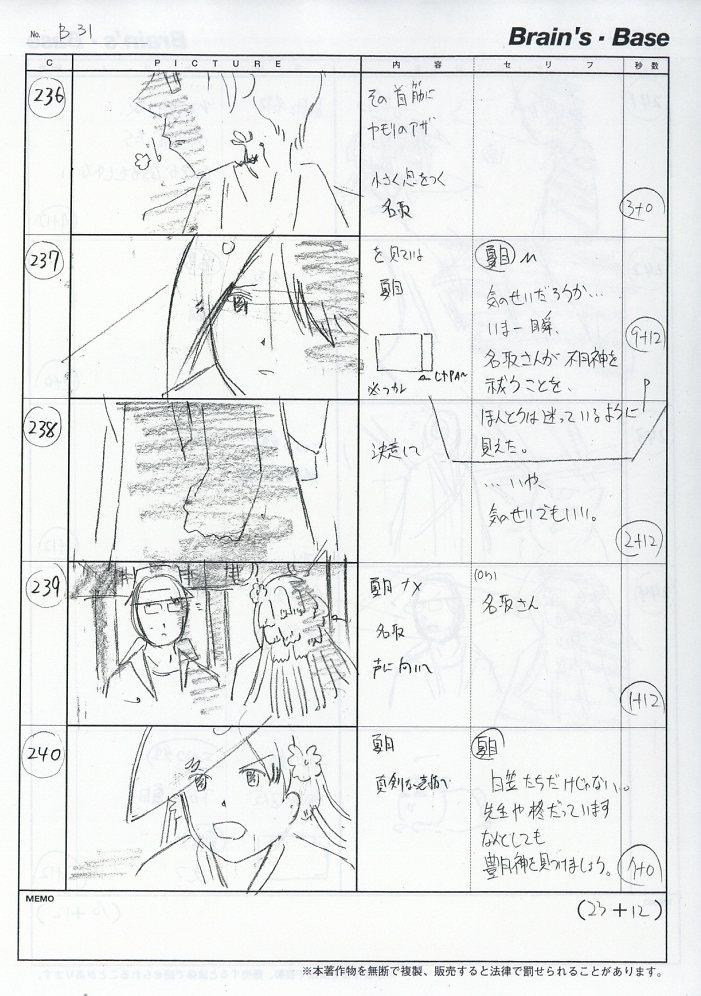 No. B 31
Brain's・Base
C PICTURE 内容 セリフ 秒数
236
その首筋に
ヤモリのアザ
小さく息をつく
名取
3+0
237
を見ている
夏目
夏目 M
気のせいだろうか…
いま一瞬、
名取さんが不月神を
祓うことを、
9+12
238
決意して
ほんとうは迷っているように
見えた。
…いや、
気のせいでもいい。
2+12
239
夏目ナメ
名取
声に向いて
(on)
名取さん
1+12
240
夏目
真剣な表情で
夏目
白笠たちだけじゃない。
先生や柊だっています
なんとしても
豊月神を見つけましょう。
7+0
MEMO
(23+12)
※本著作物を無断で複製、販売すると法律で罰せられることがあります。